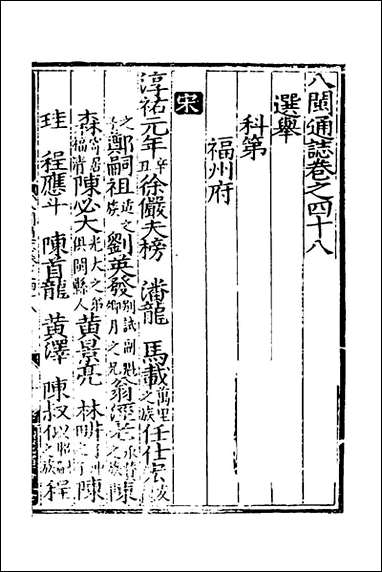 八閩通誌卷之四十八
選舉
科第
福州府
宋
淳祐元年辛丑徐儼夫榜 潘龍 馬載萬里之族任仕宏文
之鄭嗣祖近之族劉英發別試副魁 月之兄翁瀅老承贊之族陳
森寄居福清陳必大光大之弟俱閩縣人黃景亮 林 陳
珪 程應斗 陳首龍 黃澤 陳叔 之族程